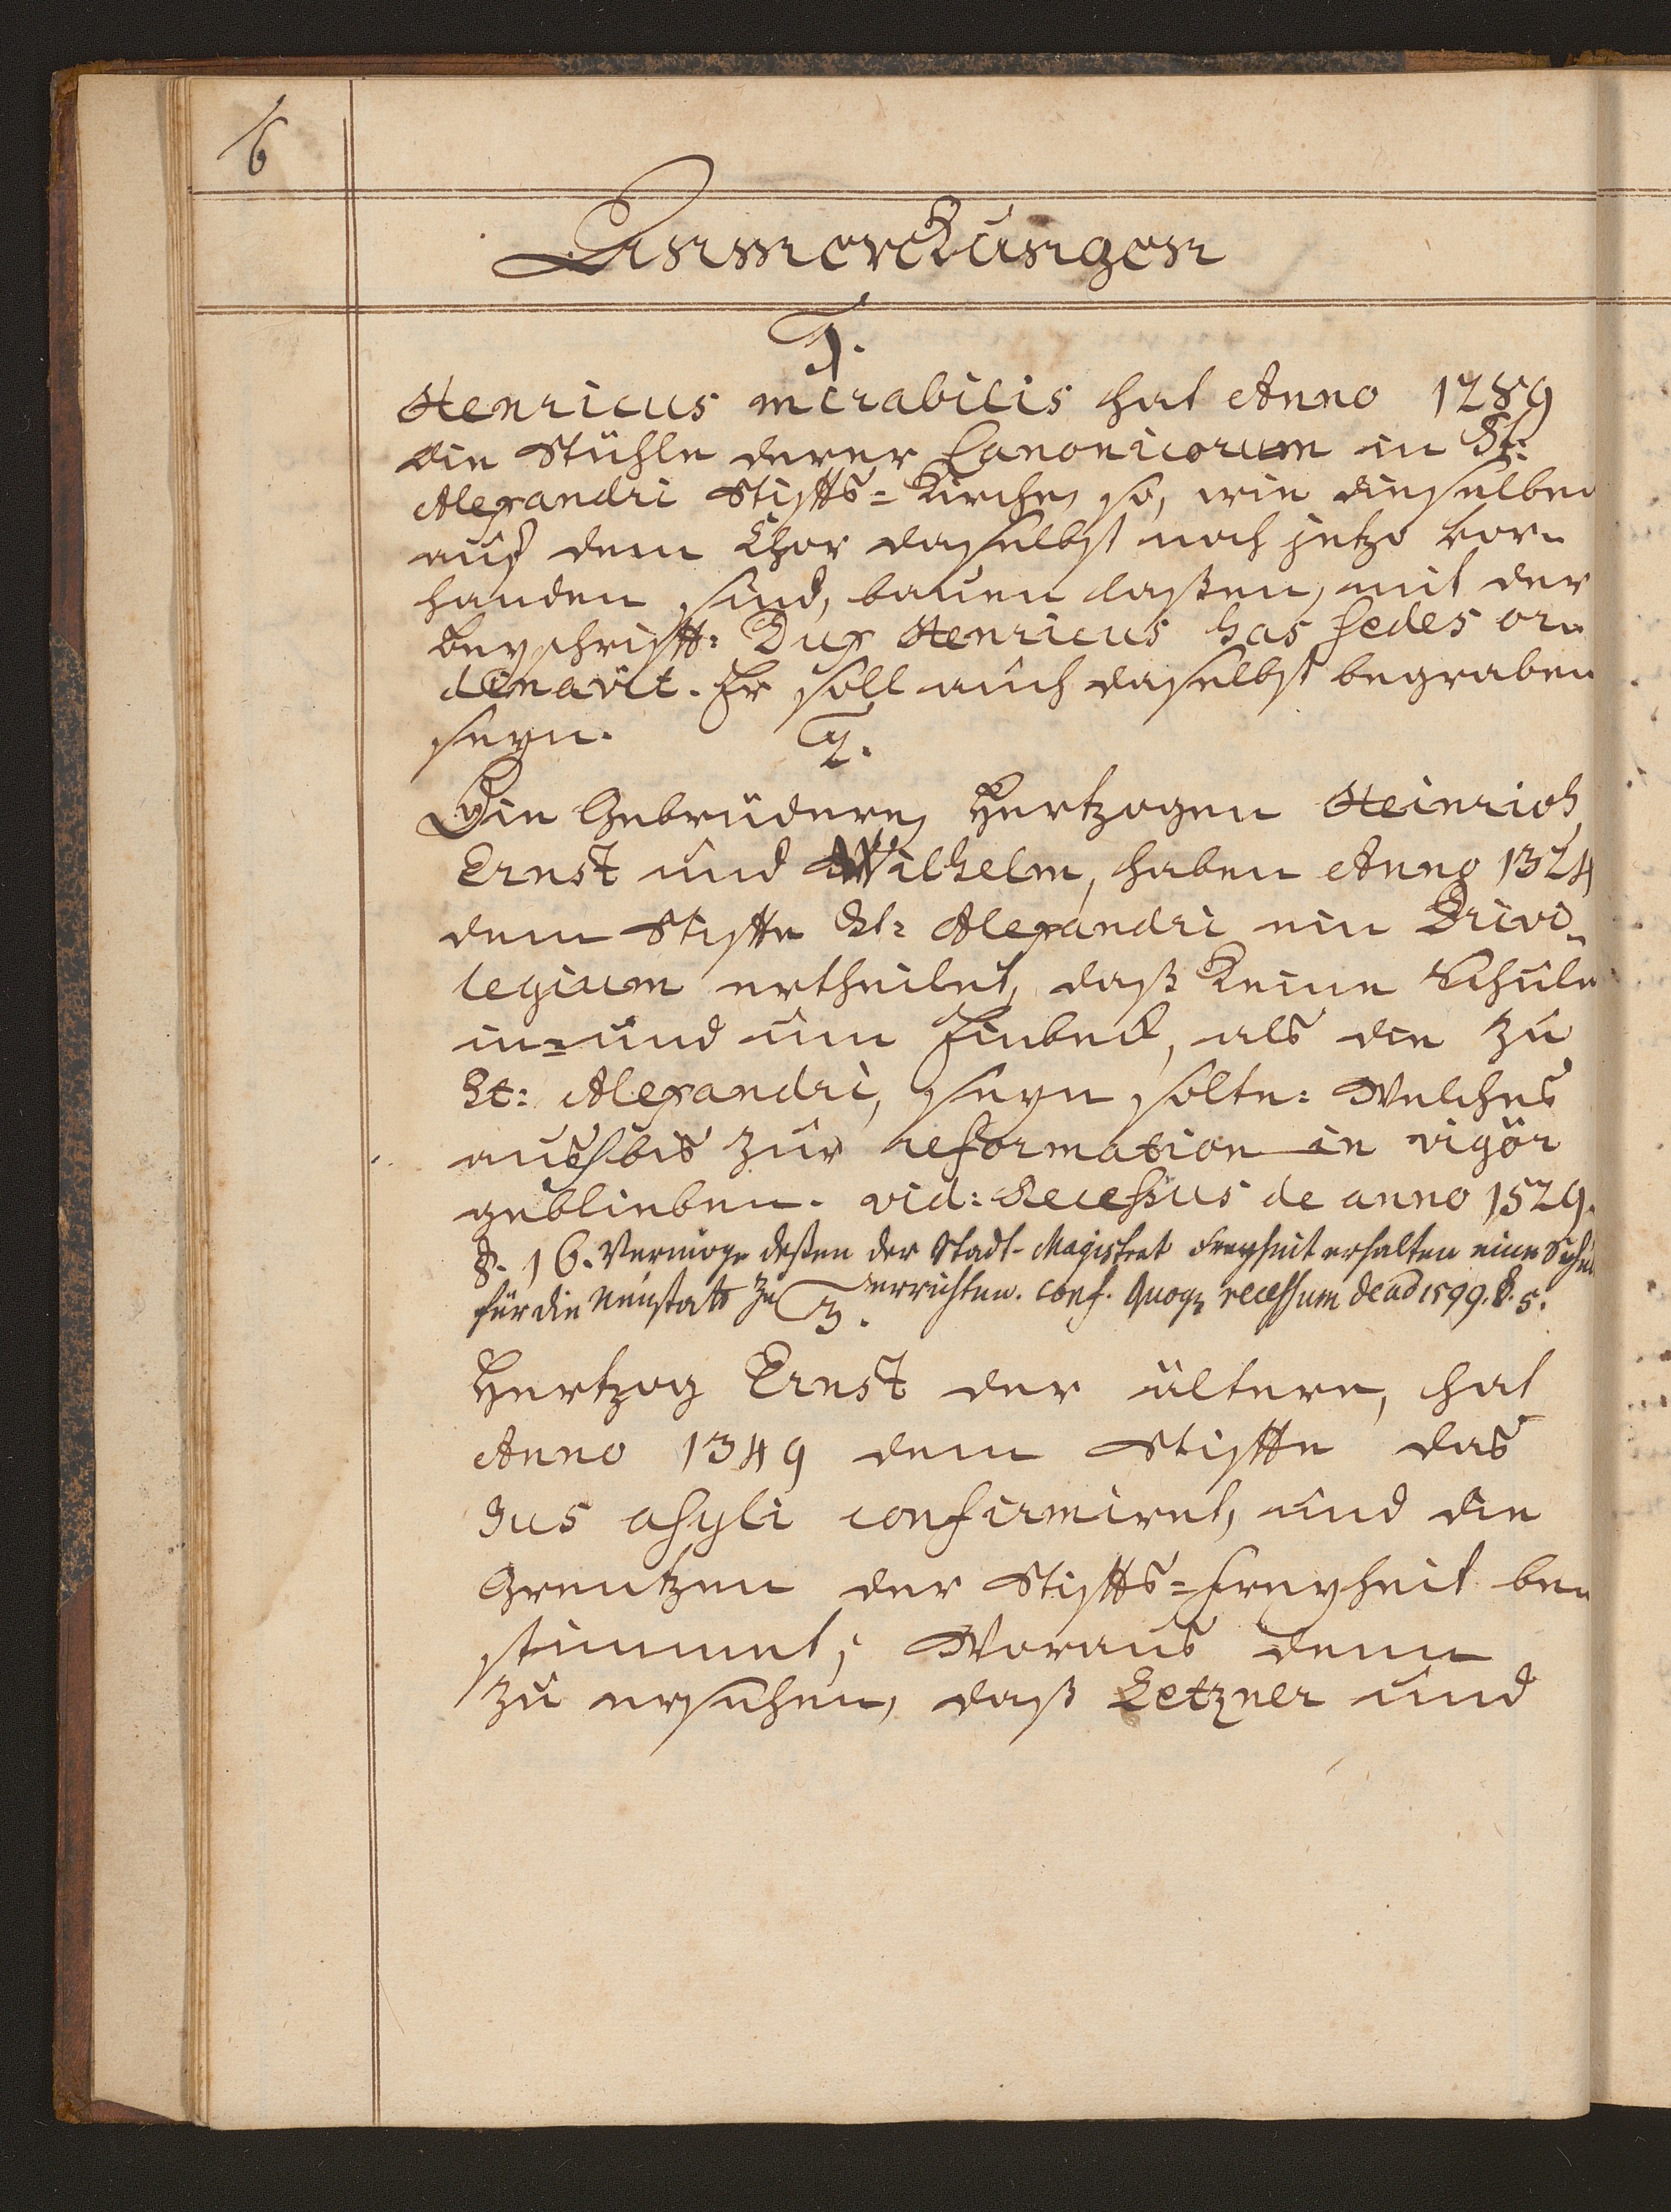 6
Anmerckungen
1.
Henricus mirabilis hat Anno 1289
die Stühle derer Canonicorum in St:
Alexandri Stiffts=Kirche, so, wie dieselben
auf dem Chor daselbst noch jetzo vor-
handen sind, bauen laßen, mit der
Beyschrifft: Dux Henricus has sedes or-
dinavit. Er soll auch daselbst begraben
seyn.
2.
Die Gebrüdere, Hertzogen Heinrich,
Ernst und Wilhelm, haben Anno 1324
dem Stiffte St: Alexandri ein Privi-
legium ertheilet, daß keine Schule
in= und um Einbeck, als die zu
St: Alexandri, seyn solte: Welches
auch bis zur reformation in vigör
geblieben. vid: Recessus de anno 1529.
§. 16. Vermöge deßen der Stadt-Magistrat Freyheit erhalten eine Schul
für die Neustadt zu errichten. conf. quoq recessum de ao 1599. §. 5.
3.
Hertzog Ernst der ältere, hat
Anno 1349 dem Stiffte das
Jus asyli confirmiret, und die
Grentzen der Stiffts=Freyheit be-
stimmet; Woraus denn
zu ersehen, daß Letzner und